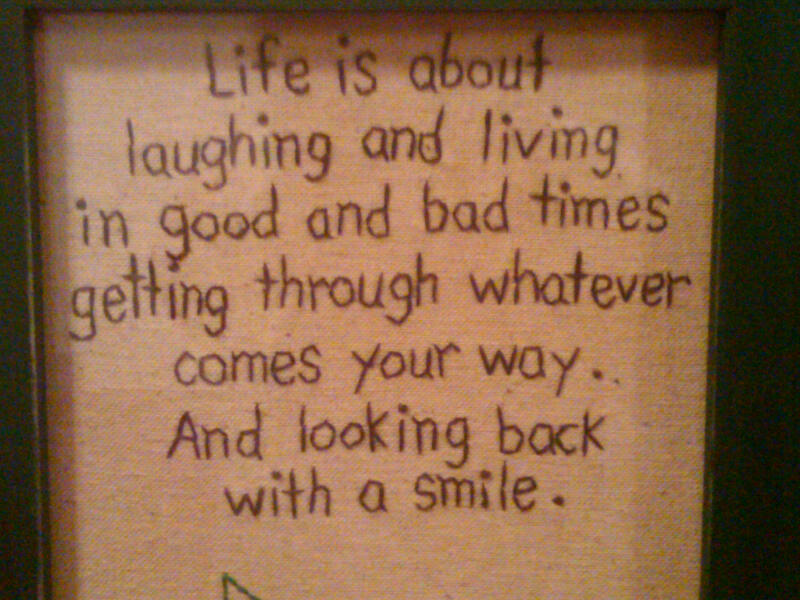 Life is about
laughing and living
in good and bad times
getting through whatever
comes your way.
And looking back
with a smile.